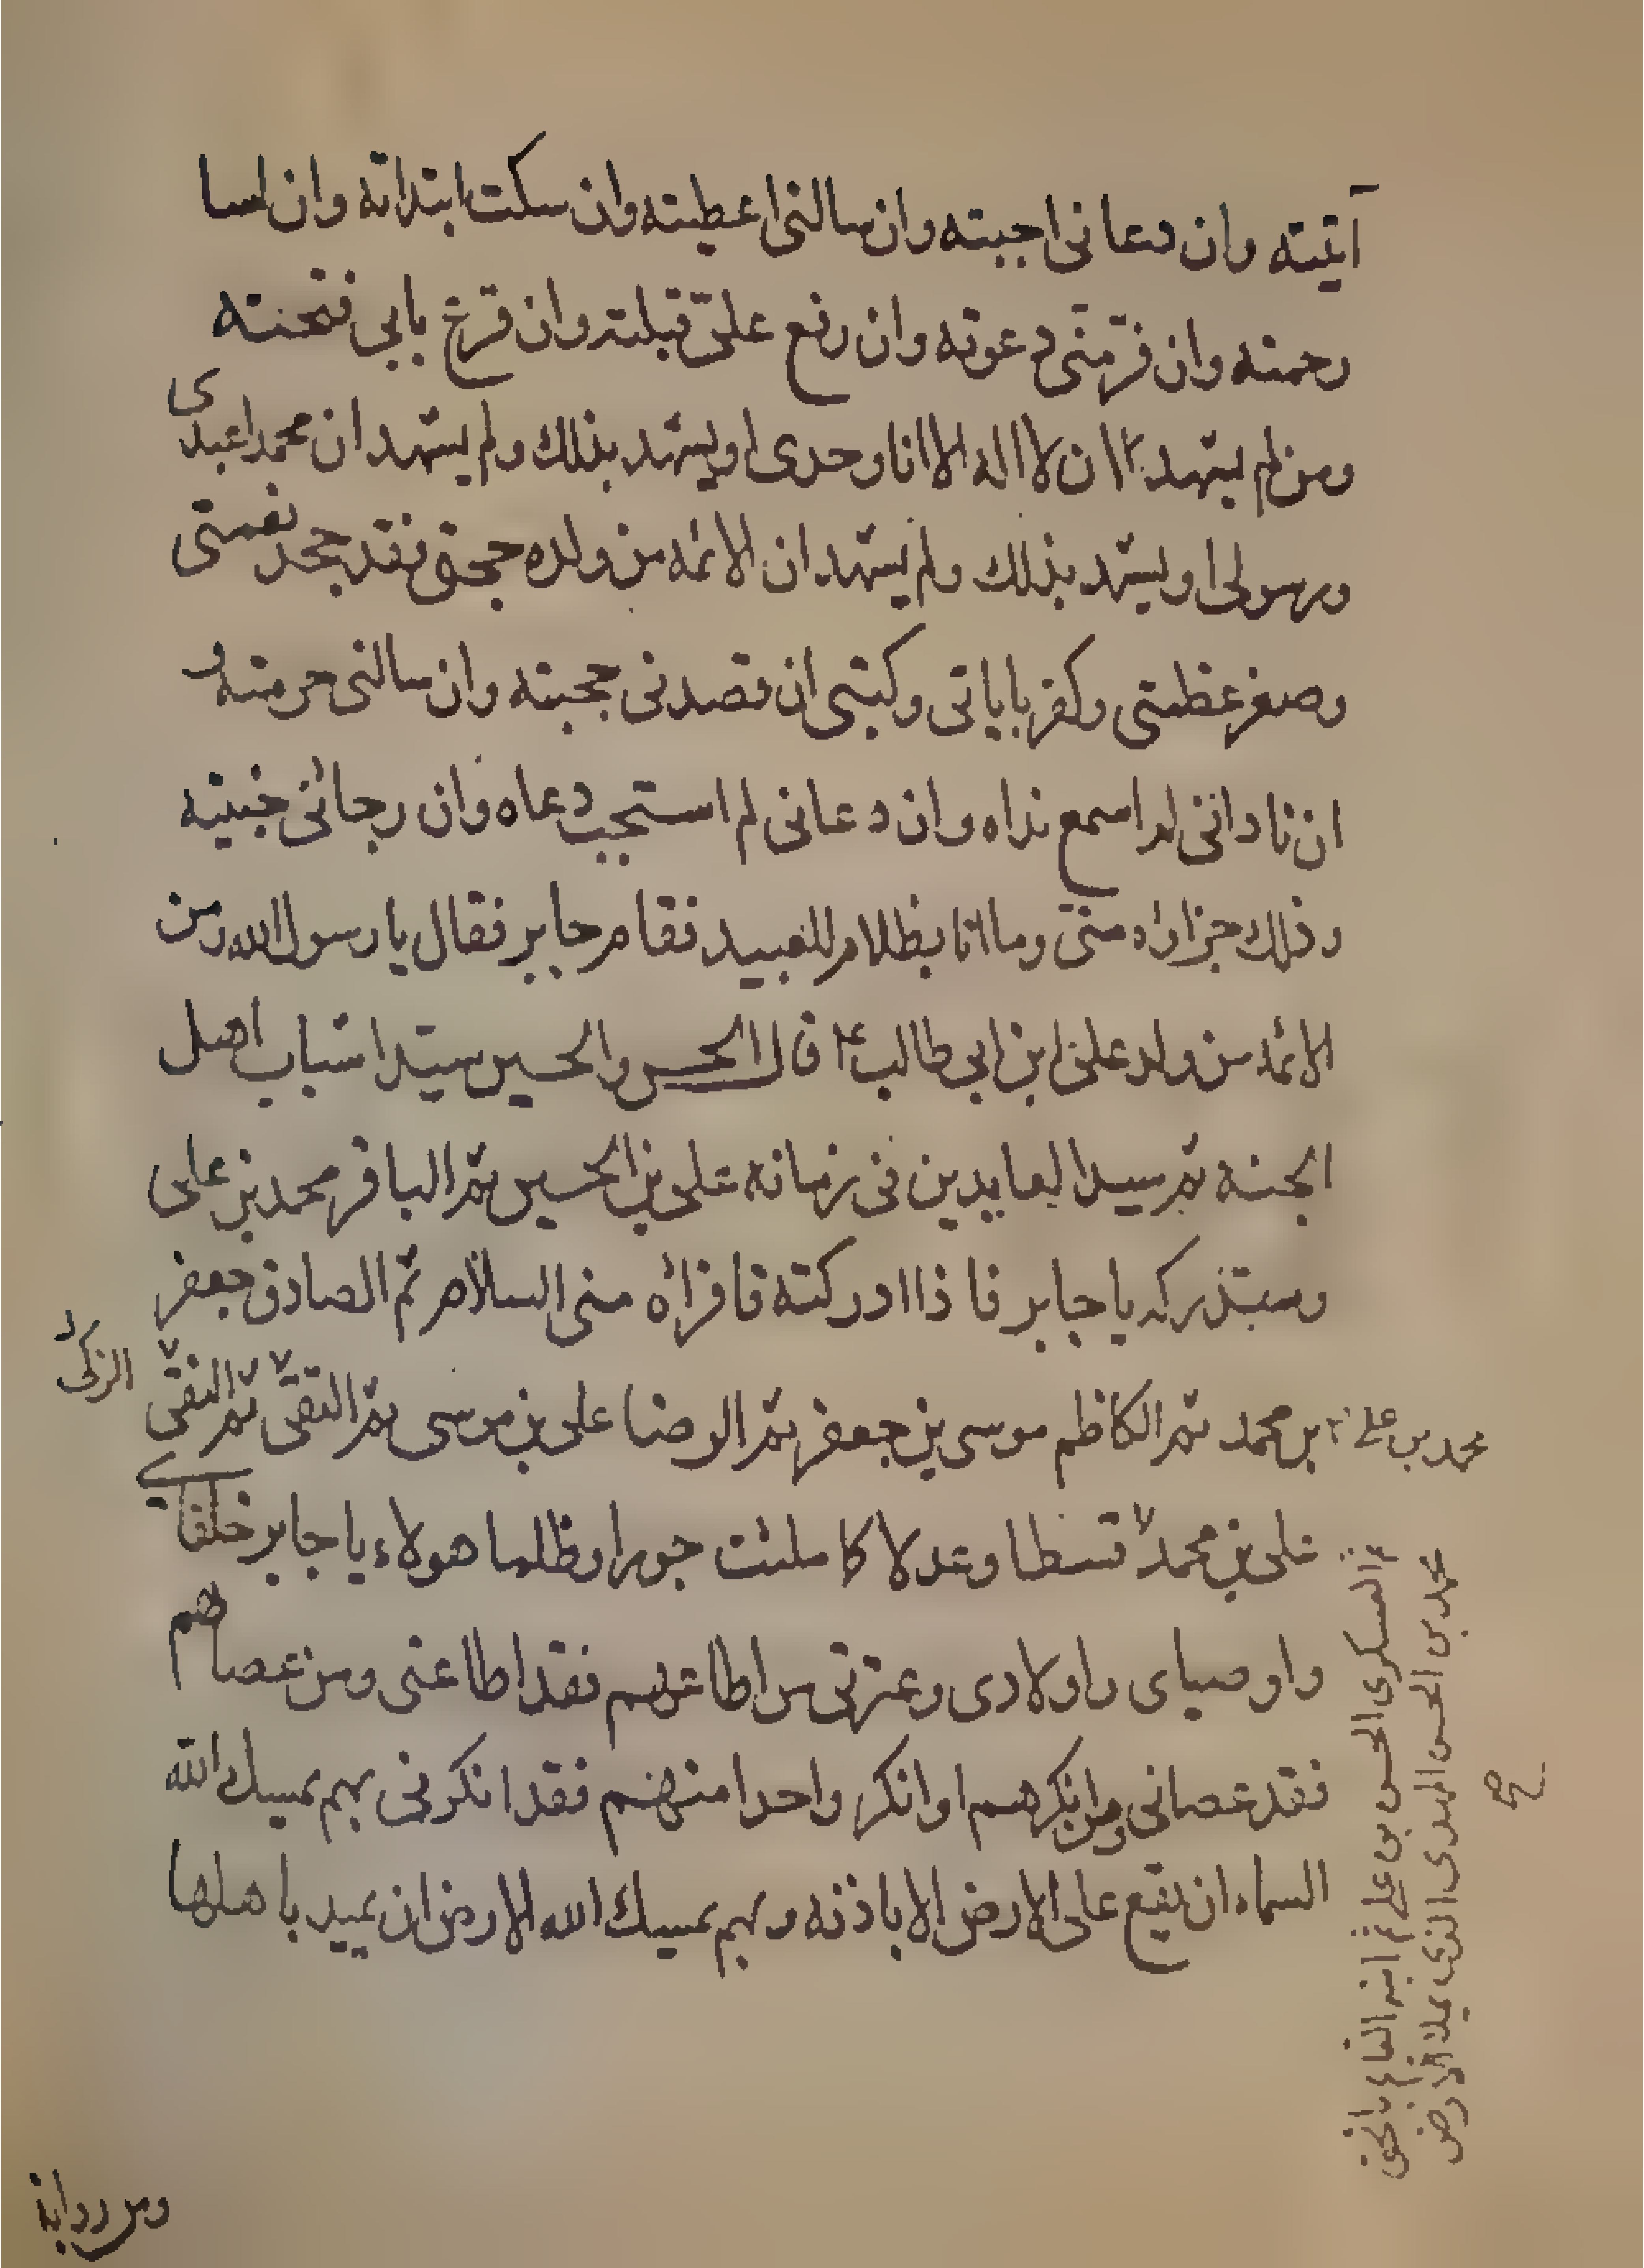 آتيته وان دعانى اجبته وان سالنى اعطيته وان سكت ابتداته وان اسا
رحمته وان فر منى دعوته وان رجع علىّ قبلته وان قرع بابى فتحته
ومن لم يشهد ان لا اله الا انا وحدى او يشهد بذلك ولم يشهد ان محمدا عبدى
ورسولى او يشهد بذلك ولم يشهد ان الائمه من ولده حججى فقد جحد نعمتى
وصغر عظمتى وكفر باياتى وكتبى ان قصدنى حجبته وان سالنى حرمته و
ان نادانى لم اسمع نداه وان دعانى لم استجب دعاه وان رجائى خيبته
وذلك جزاؤه منى وما انا بظلام للعبيد فقام جابر فقال يا رسول الله ومن
الائمه من ولد على ابن ابى طالب ع قال الحسن والحسين سيدا شباب اهل
الجنه ثم سيد العابدين فى زمانه على بن الحسين ثم الباقر محمد بن على
وستدركه يا جابر فاذا ادركته فاقراه منى السلام ثم الصادق جعفر
بن محمد ثم الكاظم موسى بن جعفر ثم الرضا على بن موسى ثم التقى ثم النقى
الزكى
محمد بن على
على بن محمد قسطا وعدلا كما ملئت جورا وظلما هولاء يا جابر خلفاى
واوصياى واولادى وعترتى من اطاعهم فقد اطاعنى ومن عصاهم
فقد عصانى ومن انكرهم او انكر واحدا منهم فقد انكرنى بهم يمسك الله
السماء ان تقع على الارض الا باذنه وبهم يمسك الله الارض ان تميد باهلها
ثم العسكرى الحسن بن على ثم ابنه القائم بالحق
محمد بن الحسن المهدى الذى يملا الارض
صح
ومن رواية